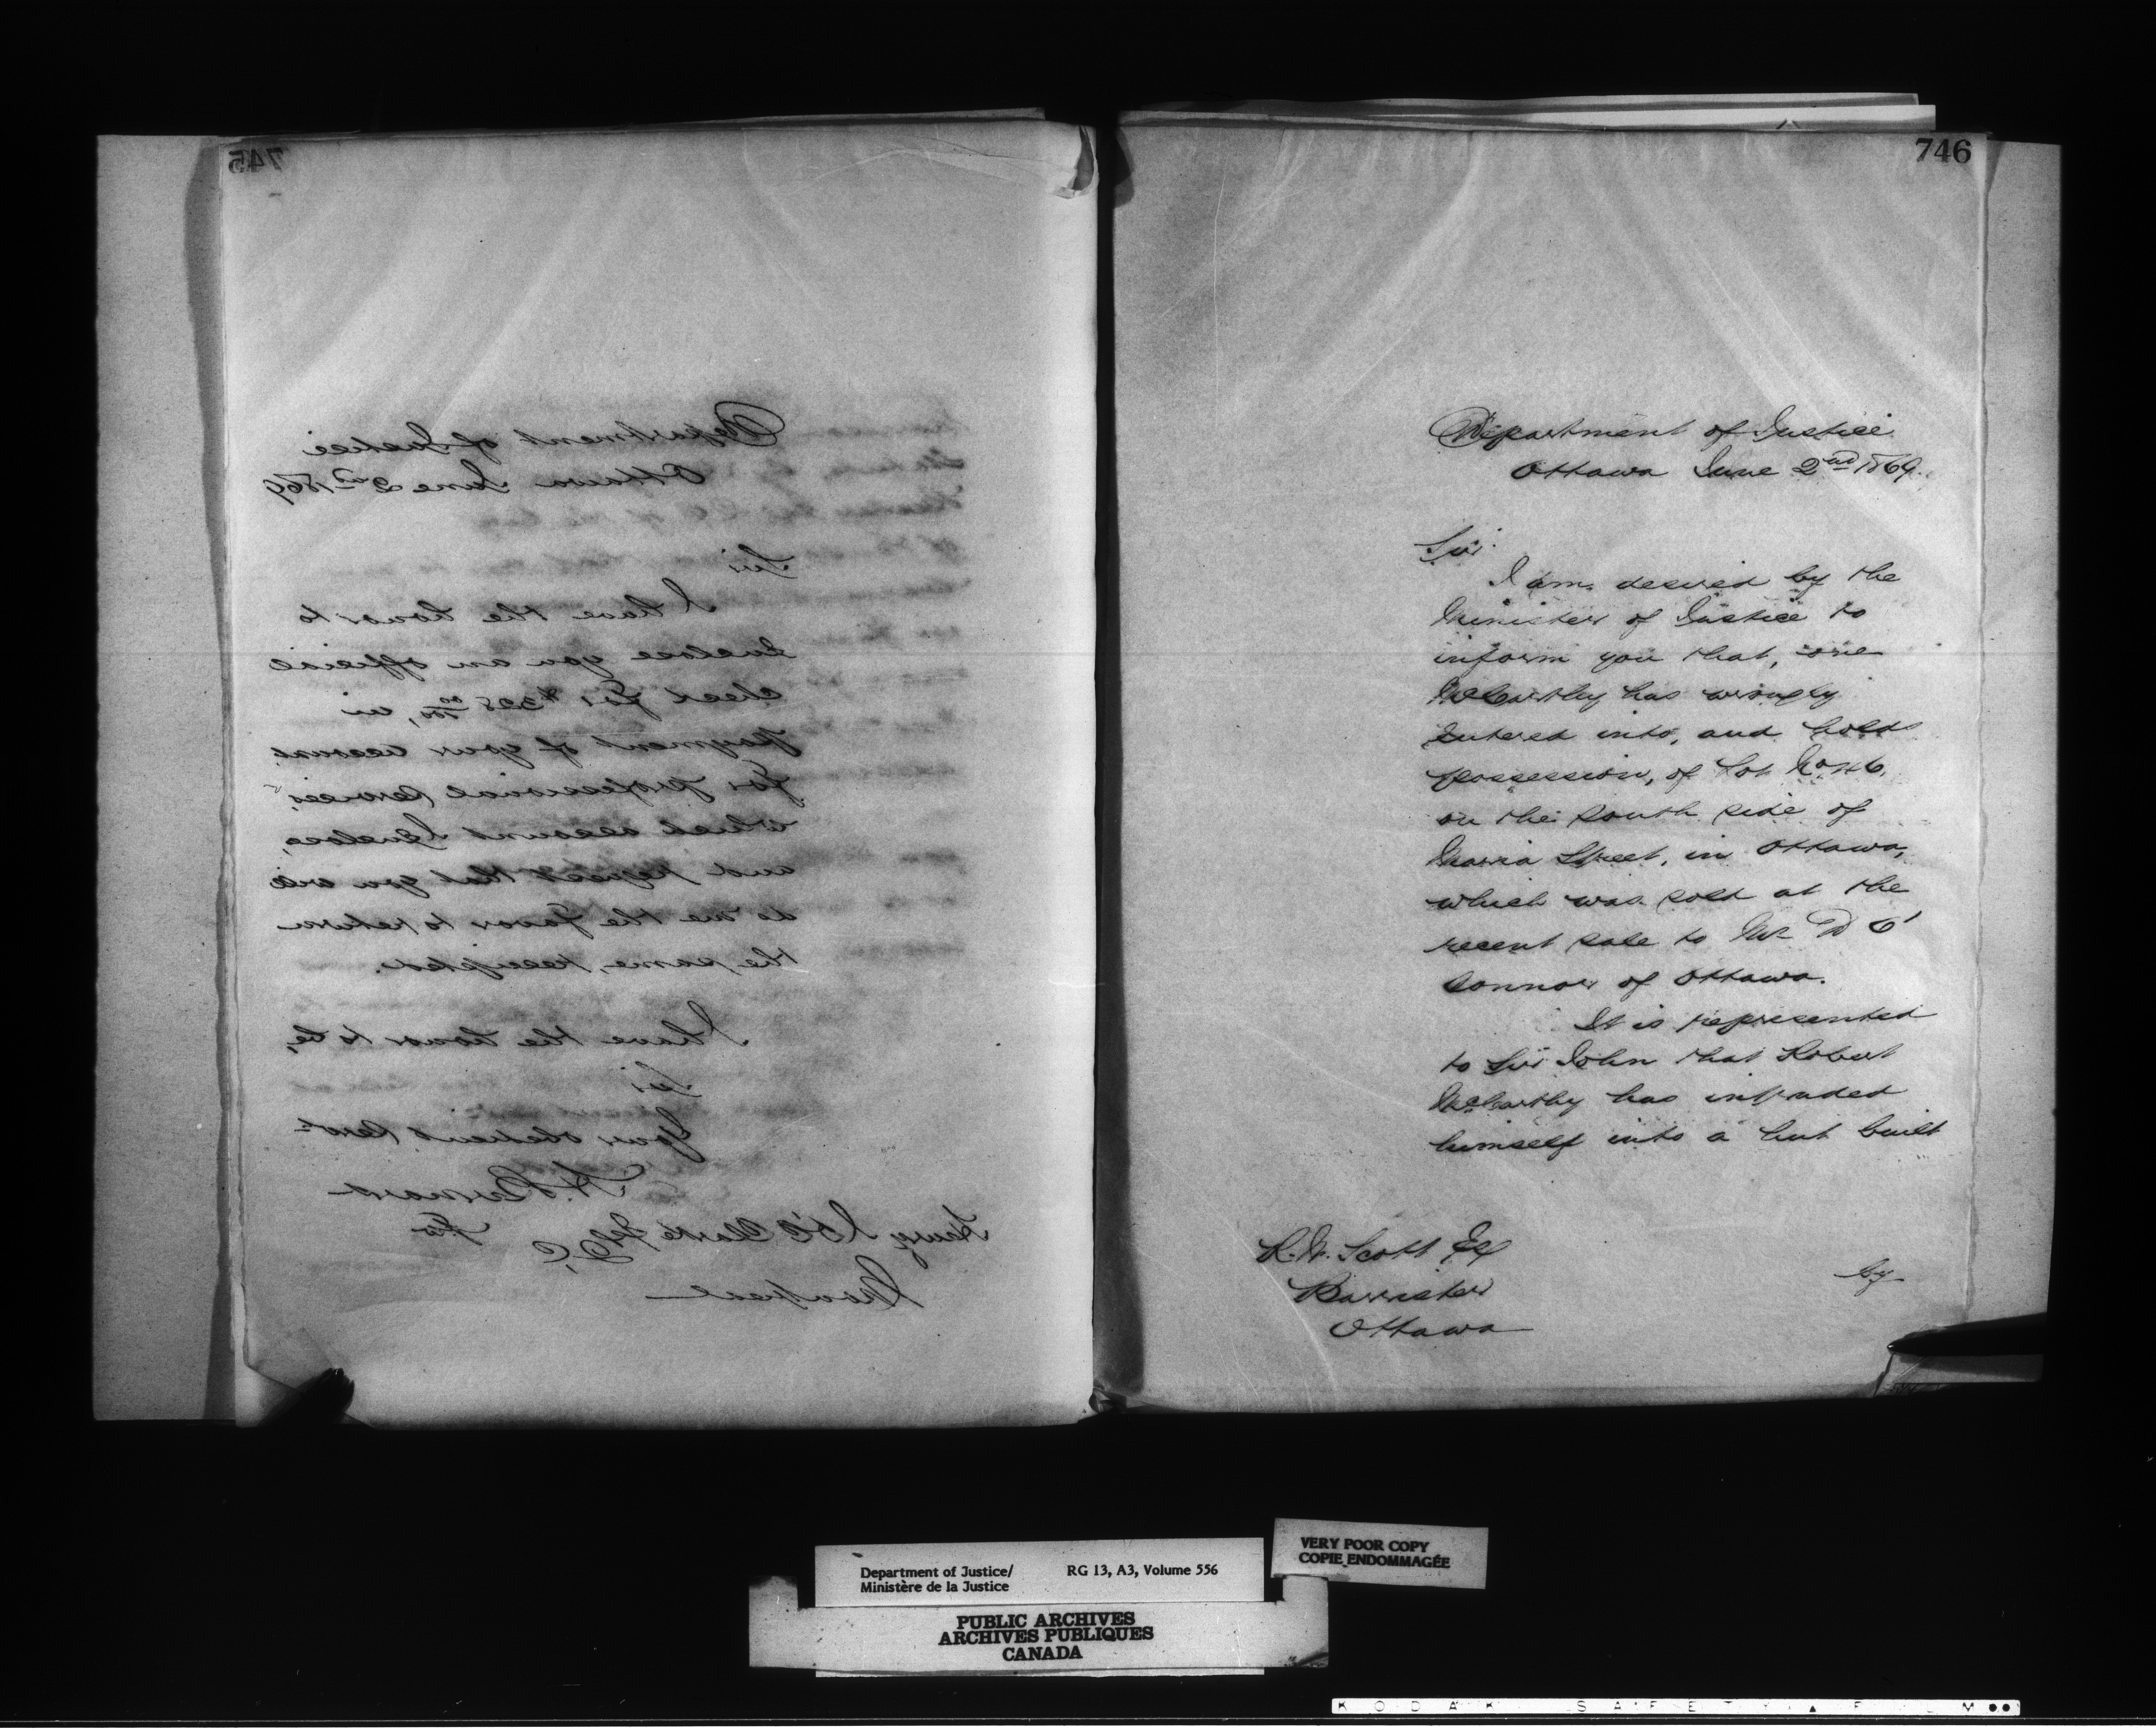 745
Department of Justice
Ottawa June 2nd 1869
Sir
I have the honor to
Enclose you an official
check for $328 00/100, in
payment of your account
for professional services,
which account I enclose,
and request that you will
do me the favor to return
the same, receipted.
I have the honor to be,
Sir
Your obedient Servt
H. Bernard
Henry J. Clarke Q.C.
Montreal
746
Department of Justice
Ottawa June 2nd 1869.
Sir
I am desired by the
Minister of Justice to
inform you that, one
McCarthy has wrongly
Entered into, and holds
possession, of Lot No
on the South side of
Maria Street, in Ottawa,
which was sold at the
recent sale to Mr D O'
Connor of Ottawa.
It is represented
to Sir John that Robert
McCarthy has intruded
himself into a hut built
R. W. Scott Esq
Barrister
Ottawa
by
Department of Justice/ RG 13, A3, Volume 556
Ministère de la Justice
VERY POOR COPY
COPIE ENDOMMAGÉE
PUBLIC ARCHIVES
ARCHIVES PUBLIQUES
CANADA
KODAK SAFETY ▲ FILM ●●